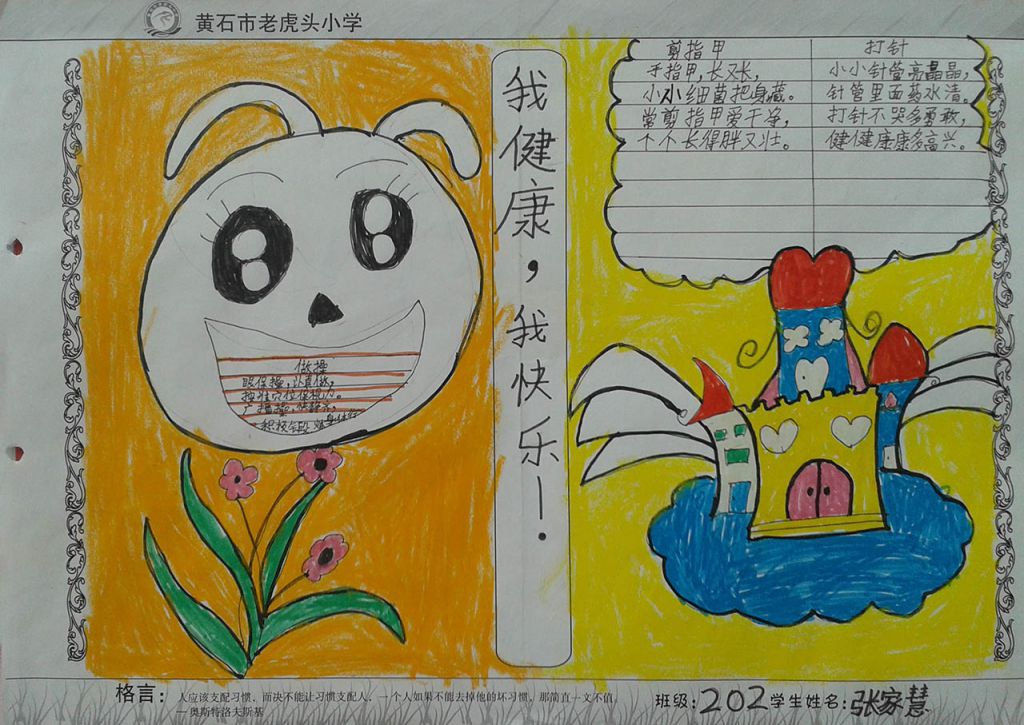 黄石市老虎头小学
我健康,我快乐!
做操
眼保操,认真做,
剪指甲
手指甲,长又长,
小小细菌把身藏。
常剪指甲爱干净,
个个长得胖又壮。
打针
小小针管亮晶晶,
针管里面药水清。
打针不哭多勇敢,
健健康康多高兴。
格言:人应该支配习惯,而决不能让习惯支配人,一个人如果不能去掉他的坏习惯,那简直一文不值。
—奥斯特洛夫斯基
班级:202 学生姓名:张家慧